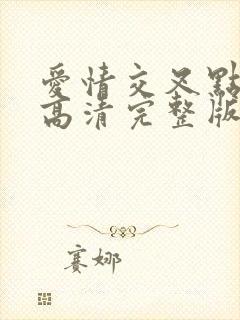 愛情交叉點
高清完整版
赛娜